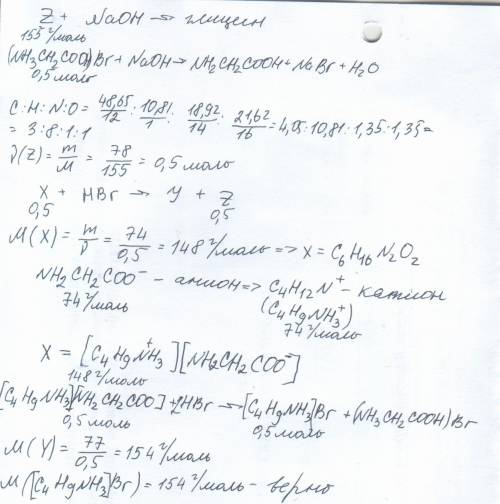 Z + NaOH → глицин
155 г/моль
(NH₃CH₂COOH)Br + NaOH → NH₂CH₂COOH + NaBr + H₂O
0,5 моль
C:H:N:O = 48,65/12 : 10,81/1 : 18,92/14 : 21,62/16 = 4,05:10,81:1,35:1,35=
= 3:8:1:1
ν(Z) = m/M = 78/155 = 0,5 моль
X + HBr → Y + Z
0,5 0,5
M(X) = m/ν = 74/0,5 = 148 г/моль => X = C₆H₁₆N₂O₂
NH₂CH₂COO⁻ - анион => C₄H₁₂N⁺ - катион
74 г/моль (C₄H₉NH₃⁺)
74 г/моль
X = [C₄H₉NH₃⁺][NH₂CH₂COO⁻]
148 г/моль
[C₄H₉NH₃][NH₂CH₂COO] + 2HBr → [C₄H₉NH₃]Br + (NH₃CH₂COOH)Br
0,5 моль 0,5 моль
M(Y) = 77/0,5 = 154 г/моль
M([C₄H₉NH₃]Br) = 154 г/моль - верно